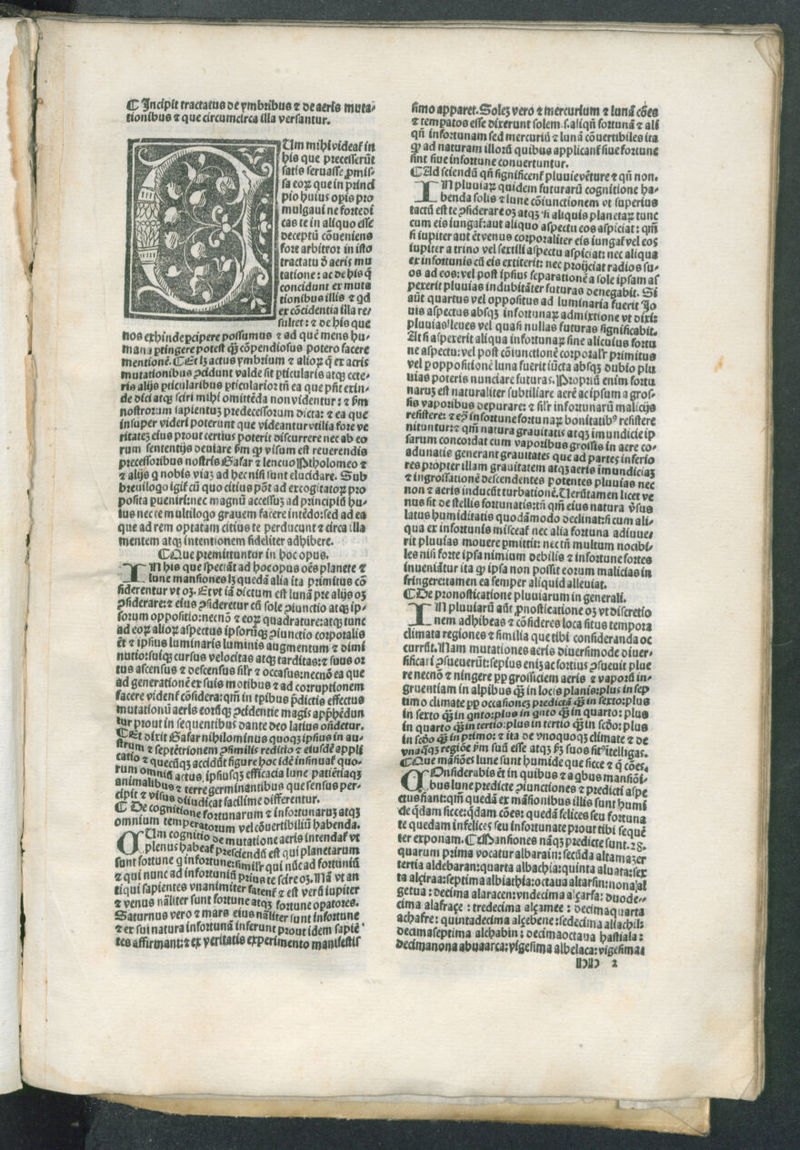 ¶ Incipit tractatus de ymbribus ⁊ de aeris muta-
tionibus ⁊ que circumcirca illa versantur.
Um mihi videaĩ in
his que precesserũt
satis seruasse ꝓmis-
sa eoꝝ que in princi
pio huius opis pro
mulgaui ne forte di
cas te in aliquo esse
deceptũ cõueniens
fore arbitror in isto
tractatu ð aeris mu
tatione: ac de his q̃
concidunt ex muta
tionibus illis ⁊ qd
ex cõcidentia illa re-
sultet: ⁊ de his que
nos exhinde ꝑcipere possumus ⁊ ad que mens hu-
mana ꝑtingere potest q̃ȝ cõpendiosus potero facere
mentionẽ. ¶ Et lȝ actus ymbrium ⁊ alioꝝ q̃ ex aeris
mutationibus ꝓcidunt valde sit ꝑticularis atqȝ cete-
ris alijs ꝑticularibus ꝑticularior tñ ea que pñt exin-
de dici atqȝ sciri mihi omittẽda non videntur: ⁊ ẜm
nostrorum sapientuȝ predecessorum dicta: ⁊ ea que
insuper videri poterunt que videantur vtilia fore ve
ritateȝ eius prout certius poterit discurrere nec ab eo
rum sententijs deuiare ẜm qꝫ visum est reuerendis
precessoribus nostris Gasar ⁊ lencuo Ptholomeo ⁊
⁊ alijs q̃ nobis viaȝ ad hec nisi sunt elucidare. Sub
breuilogo igiẽ cũ quo citius põt ad excogitatoꝝ pro
posita pueniri: nec magnũ accessuȝ ad principiũ hu-
ius nec te multilogo grauem facere intẽdo: sed ad ea
que ad rem optatam citius te perducunt ⁊ circa illa
mentem atqȝ intentionem fideliter adhibere.
¶ Que premittuntur in hoc opus.
IN his que spectãt ad hoc opus oẽs planete ⁊
lune mansiones lȝ quedã alia ita primitus cõ
siderentur vt oȝ. Et vt iã dictum est lunã pre alijs oȝ
ꝓsiderare: ⁊ eius ꝓsideretur cũ sole ꝓiunctio atqȝ ip-
sorum oppositio: necnõ ⁊ eoꝝ quadrature: atqȝ tunc
ad eoꝝ alioꝝ aspectus ipsorũqȝ ꝓiunctio corporalis
ẽt ⁊ ipsius luminaris luminis augmentum ⁊ dimi
nutio: suiqȝ cursus velocitas atqȝ tarditas: ⁊ suus or
tus ascensus ⁊ descensus sĩlr ⁊ occasus: necnõ ea que
ad generationẽ ex suis motibus ⁊ ad corruptionem
facere videntẽ cõsidera: qm̃ in tpibus p̃dictis effectus
mutationũ aeris eorũqȝ ꝓcidentie magis app̃hẽdun
tur prout in sequentibus dante deo latius oñdetur.
¶ Et dixit Gasar nihilominus quoqȝ ipsius in au-
strum ⁊ septẽtrionem ꝓsimilis reditio ⁊ eiusdẽ appli
catio ⁊ quecũqȝ accidũt figure hoc idẽ insinuãt quo-
rum omniũ actus, ipsiusqȝ efficacia lune patiẽtiaqȝ
animalibus ⁊ terre germinantibus que sensus per-
cipit ⁊ visus diiudicat facillime differentur.
¶ De cognitione fortunarum ⁊ infortunaruȝ atqȝ
omnium temperatorum vel cõuertibiliũ habenda.
CUm cognitio de mutatione aeris intendaẽ vt
plenus habeaẽ presciendũ est qui planetarum
sunt fortune q̃ infortune: similr qui nũc ad fortuniũ
⁊ qui nunc ad infortuniũ prius te scire oȝ. Nã vt an
tiqui sapientes vnanimiter fatenẽ ⁊ est verũ iupiter
⁊ venus nãliter sunt fortune atqȝ fortune opatores.
Saturnus vero ⁊ mars eius nãliter sunt infortune
⁊ ex sui natura infortunã inferunt prout idem sapiẽ-
tes affirmant: ⁊ ex veritatis experimento manifestis
simo apparet. Soleȝ vero ⁊ mercurium ⁊ lunã cões
⁊ tempatos esse dixerunt solem .s. aliqñ fortunã ⁊ ali
qñ infortunam sed mercuriũ ⁊ lunã cõuertibiles ita
qꝫ ad naturam illorũ quibus applicant siue fortune
sint siue infortune conuertuntur.
¶ Ad sciendũ qñ significent̃ pluuie vẽture ⁊ qñ non.
IN pluuiaꝝ quidem futuraꝝ cognitione ha-
benda solis ⁊ lune cõiunctionem vt superius
tactũ est te ꝓsiderare oȝ atqȝ si aliquis planetaꝝ tunc
cum eis iungaẽ: aut aliquo aspectu eos aspiciat: qm̃
si iupiter aut ẽt venus corporaliter eis iungaẽ vel eos
iupiter a trino vel sextili aspectu aspiciat: nec aliqua
ex infortunis cũ eis extiterit: nec proijciat radios su-
os ad eos: vel post ipsius separationẽ a sole ipsam as
pexerit pluuias indubitãter futuras denegabit. Si
aũt quartus vel oppositus ad luminaria fuerit Jo
uis aspectus absqȝ infortunaꝝ admixtione vt dixit
pluuias leues vel quasi nullas futuras significabit.
At si aspexerit aliqua infortunaꝝ sine alicuius fortu
ne aspectu: vel post cõiunctionẽ corporalẽ primitus
vel ꝑ oppositionẽ luna fuerit iũcta absqȝ dubio plu
uias poteris nunciare futuras. Propriũ enim fortu
naruȝ est naturaliter subtiliare aerẽ ac ipsum a gros-
sis vaporibus depurare: ⁊ sĩlr infortunarũ malicijs
resistere: ⁊ eꝯ infortune fortunaꝝ bonitatibꝰ resistere
nituntur: ⁊ qm̃ natura grauitatis atqȝ immundicie ip
sarum concordat cum vaporibus grossis in aere co-
adunatis generant grauitates que ad partes inferio
res propter illam grauitatem atqȝ aeris immundiciaȝ
⁊ ingrossationẽ descendentes potentes pluuias nec
non ⁊ aeris inducũt turbationẽ. Uerũtamen licet ve
nus sit de stellis fortunatis: tñ qm̃ eius natura ꝟsus
latus humiditatis quodãmodo declinat: si cum ali-
qua ex infortunis misceaẽ nec alia fortuna adiuue-
rit pluuias mouere ꝑmittit: nec tñ multum nocibi-
les nisi forte ipsa nimium debilis ⁊ infortune fortes
inueniãtur ita qꝫ ipsa non possit eorum malicias in
fringere: tamen ea semper aliquid alleuiat.
¶ De pronosticatione pluuiarum in generali.
IN pluuiarũ aũt ꝓnosticatione oȝ vt discretio
nem adhibeas ⁊ cõsideres loca situs tempora
climata regiones ⁊ similia que tibi consideranda oc
currũt. Nam mutationes aeris diuersimode diuer-
sificari ꝓsueuerũt: sepius eniȝ ac fortius ꝓsueuit plue
re necnõ ⁊ ningere ꝓp grossiciem aeris ⁊ vaporũ in-
gruentiam in alpibus q̃ȝ in locis planis: plus in sep
timo climate ꝓp occasionem predictã q̃ȝ in sexto: plus
in sexto q̃ȝ in qnto: plus in qnto q̃ȝ in quarto: plus
in quarto q̃ȝ in tertio: plus in tertio q̃ȝ in scðo: plus
in scðo q̃ȝ in primo: ⁊ ita de vnoquoqȝ climate ⁊ de
vnaq̃qȝ regiõe ẜm suũ esse atqȝ ẜm suos situs ĩtelligas.
¶ Que mãsiões lune sunt humide que sicce ⁊ q̃ cões.
COnsiderabis ẽt in quibus ⁊ a qbus mansiõi-
bus lune predicte ꝓiunctiones ⁊ predicti aspe
ctus fiant: qm̃ quedã ex mãsionibus illis sunt humi
de q̃dam sicce: q̃dam cões: quedã felices seu fortuna
te quedam infelices seu infortunate prout tibi sequẽ
ter exponam. ¶ Mansiones nãqȝ predicte sunt .28.
quarum prima vocatur albarain: secũda altamaȝer
tertia aldebaran: quarta albachia: quinta aluata: sex
ta alçiraa: septima albiathia: octaua altarsin: nona al
getua: decima alaracen: vndecima alçarsa: duode-
cima alafraçe: tredecima alçamee: decimaquarta
achafre: quintadecima alçebene: sedecima aliachil:
decimaseptima alchabin: decimaoctaua hastiala:
decimanona abuaarca: vigesima albelaca: vigesima
DD 2